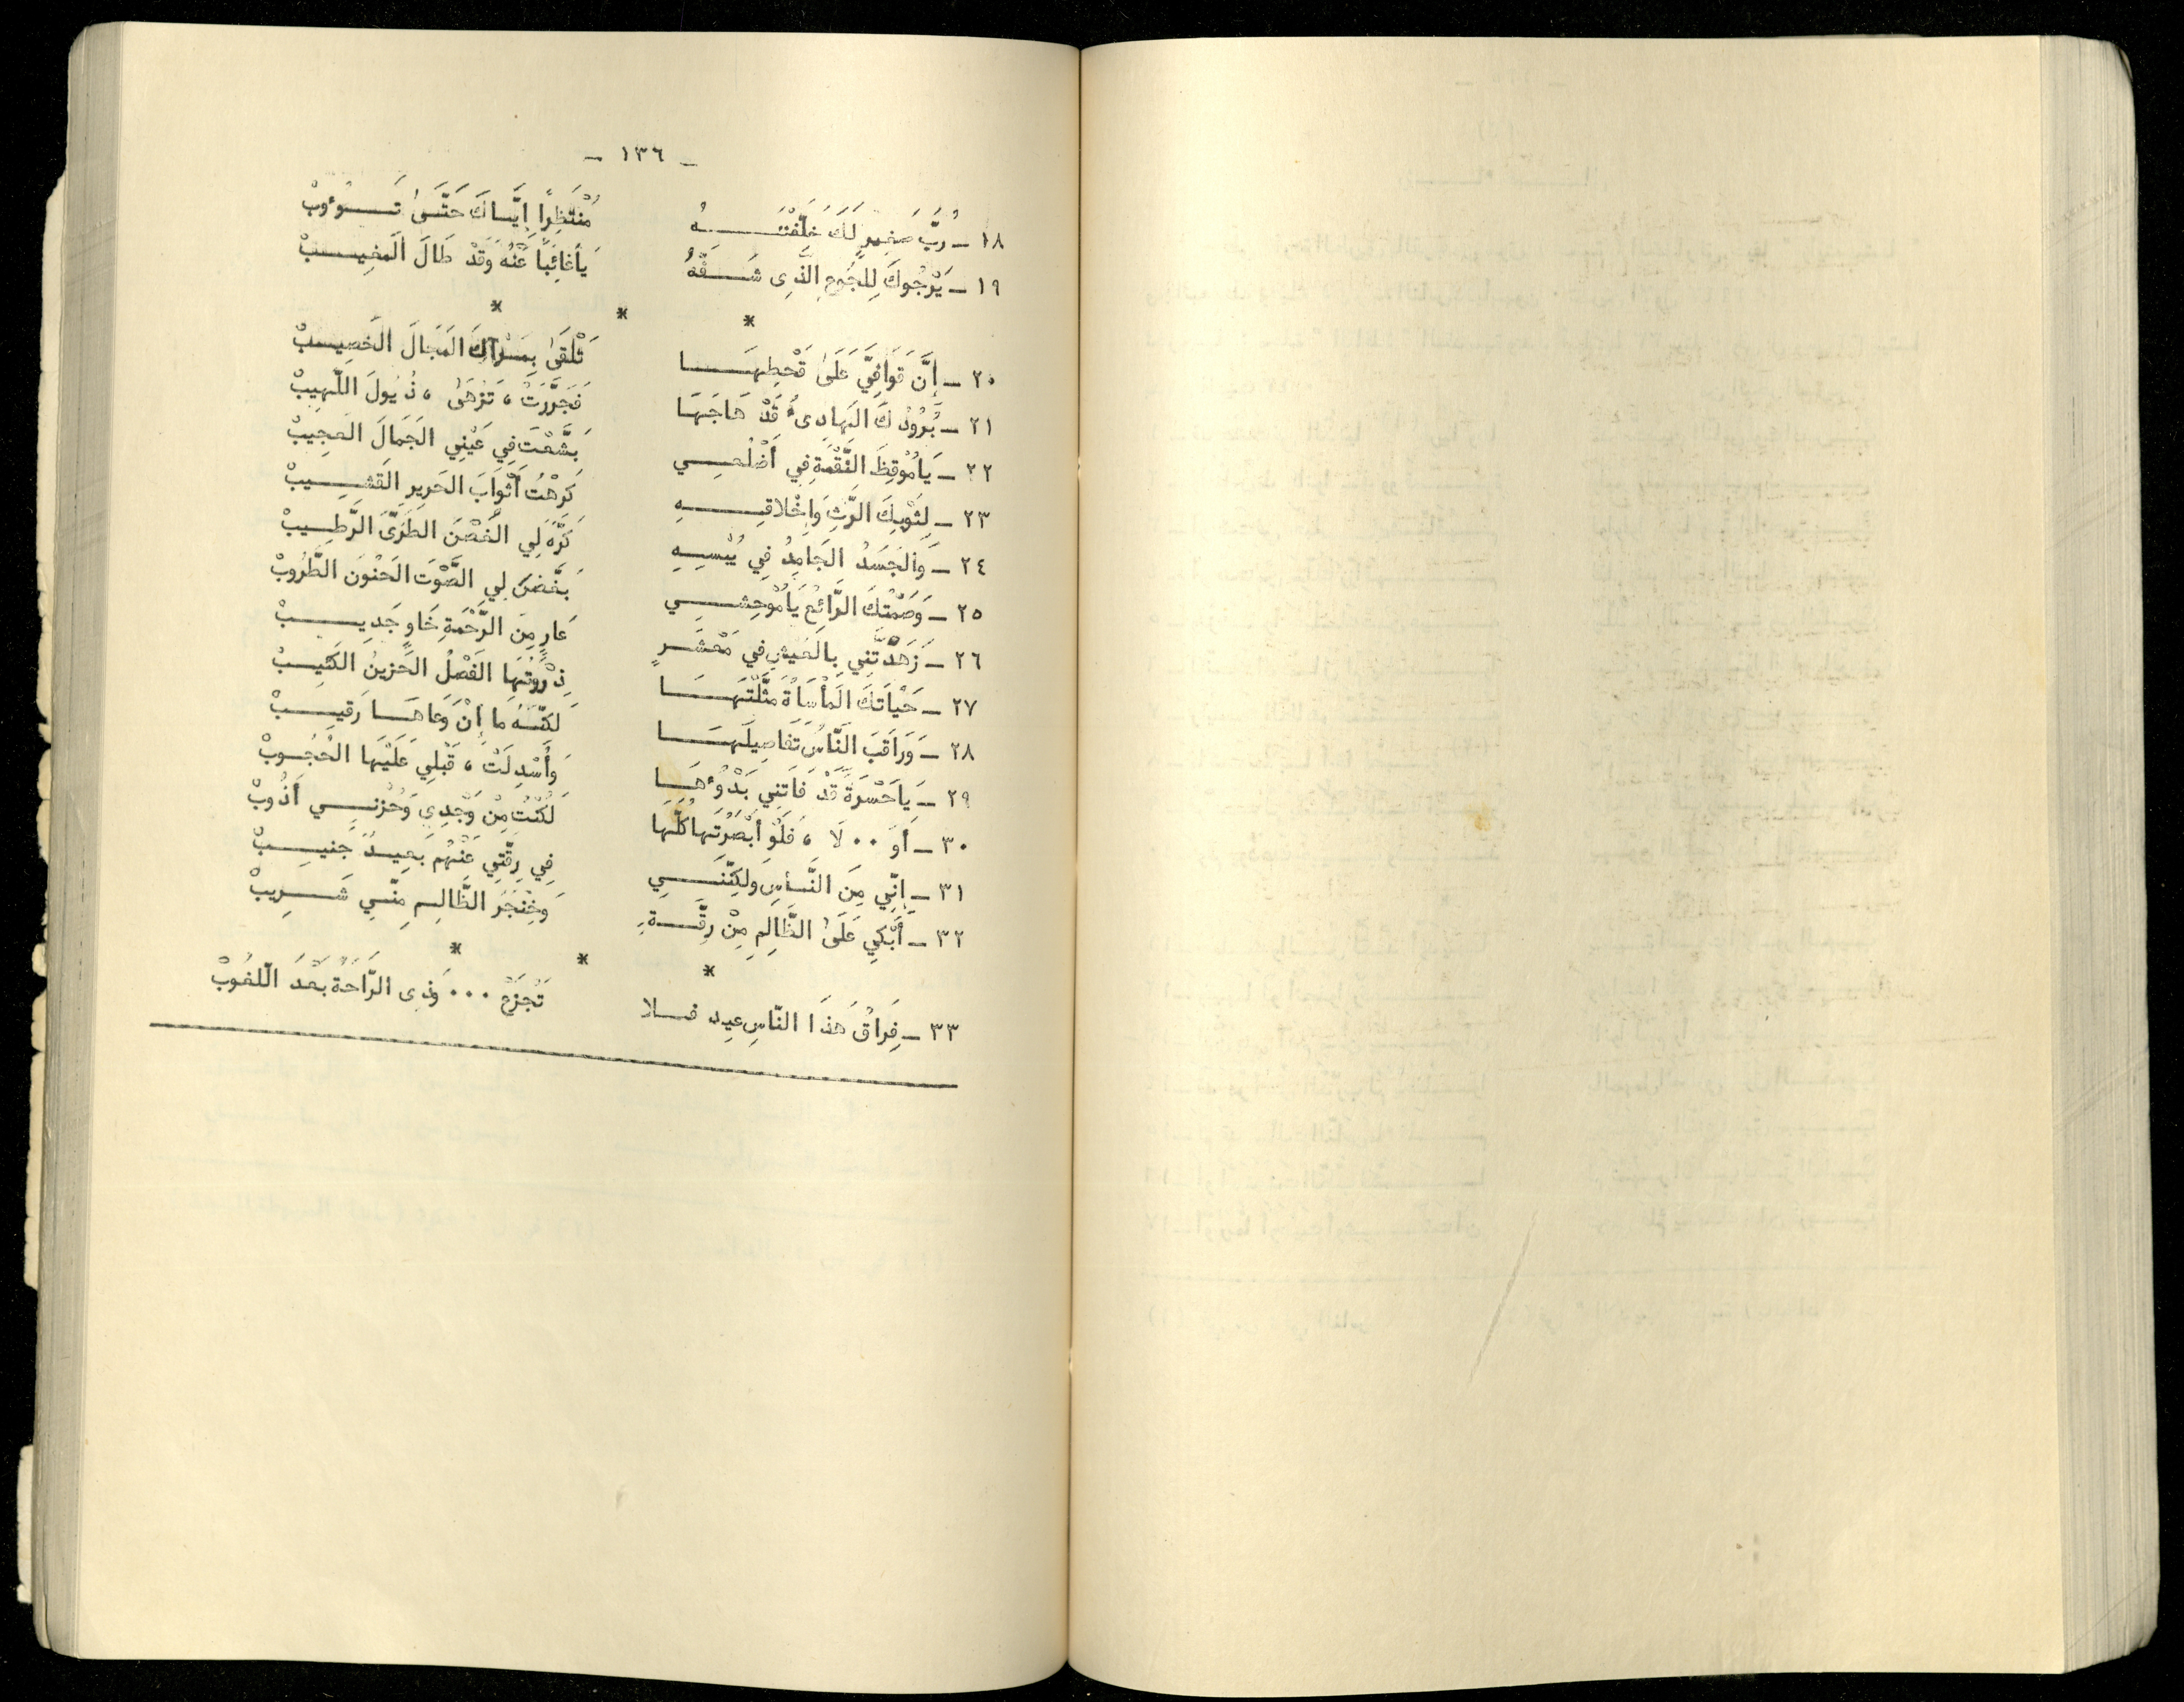 - ١٣٦ -
١٨ - رُبَّ صَغِيرٍ لَكَ خَلَّفْتَهُ مُنْتَظِرًا إِيَّاكَ حَتَّىٰ تَوءُوبْ
١٩ - يَرْجُوكَ لِلجُوعِ الَّذِى شَفَّهُ يَاغَائِبًا عَنْهُ وَقَدْ طَالَ المَغِيبْ
* * *
٢٠ - إِنَّ قَوَافِيَّ عَلَىٰ قَحْطِهَا تَلْقَىٰ بِمَرْآكَ المَجَالَ الخَصِيبْ
٢١ - بُرُودُكَ الهَادِىءُ قَدْ هَاجَهَا فَجَرَّرَتْ ، تَزْهَىٰ ، ذُيُولَ اللَّهِيبْ
٢٢ - يَامُوْقِظَ النَّقْمَةِ فِي أَضْلُعِي بَشَّعْتَ فِي عَيْنِي الجَمَالَ العَجِيبْ
٢٣ - لِثَوْبِكَ الرَّثِ وَإِخْلاقِهِ كَرِهْتُ أَثْوَابَ الحَرِيرِ القَشِيبْ
٢٤ - وَالجَسَدُ الجَامِدُ فِي يُبْسِهِ كَرَّهَ لِي الغُصْنَ الطَرِيَّ الرَّطِيبْ
٢٥ - وَصَمْتُكَ الرَّائِعُ يَامُوْحِشِي بَغَّضَ لِي الصَّوْتَ الحَنُونَ الطَّرُوبْ
٢٦ - زَهَّدْتَنِي بِالعَيْشِ فِي مَعْشَرٍ عَارٍ مِنَ الرَّحْمَةِ خَاوٍ جَدِيبْ
٢٧ - حَيَاتَكَ المَأْسَاةُ مَثَّلْتَهَا ذِرْوَتُهَا الفَصْلُ الحَزِينُ الكَئِيبْ
٢٨ - وَرَاقَبَ النَّاسُ تَفَاصِيلَهَا لكِنَّهُ مَا إِنْ وَعَاهَا رَقِيبْ
٢٩ - يَاحَسْرَةً قَدْ فَاتَنِي بَدْوُءهَا وَأُسْدِلَتْ ، قَبْلِي عَلَيْهَا الحُجُوبْ
٣٠ - أَوَ ٠٠ لَا ، فَلَوْ أَبْصَرْتُهَا كُلَّهَا لَكُنْتُ مِنْ وَجْدِي وَحُزْنِي أَذُوبْ
٣١ - إِنِّي مِنَ النَّاسِ وَلكِنَّنِي فِي رِقَّتِي عَنْهُم بَعِيدٌ جَنِيبْ
٣٢ - أَبْكِي عَلَىٰ الظَّالِمِ مِنْ رِقَّةٍ وَخِنْجَرُ الظَّالِمِ مِنِّي شَرِيبْ
* * *
٣٣ - فِرَاقُ هَذَا النَّاسِ عِيد فلا تَجْزَعْ ٠٠٠ وَذِى الرَّاحَةُ بَعْدَ اللّغُوبْ